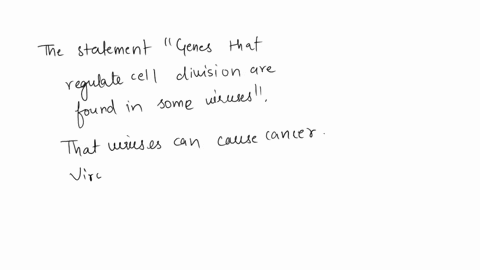 The statement "Genes that
regulate cell division are
found in some viruses".
That viruses can cause cancer.
Virc